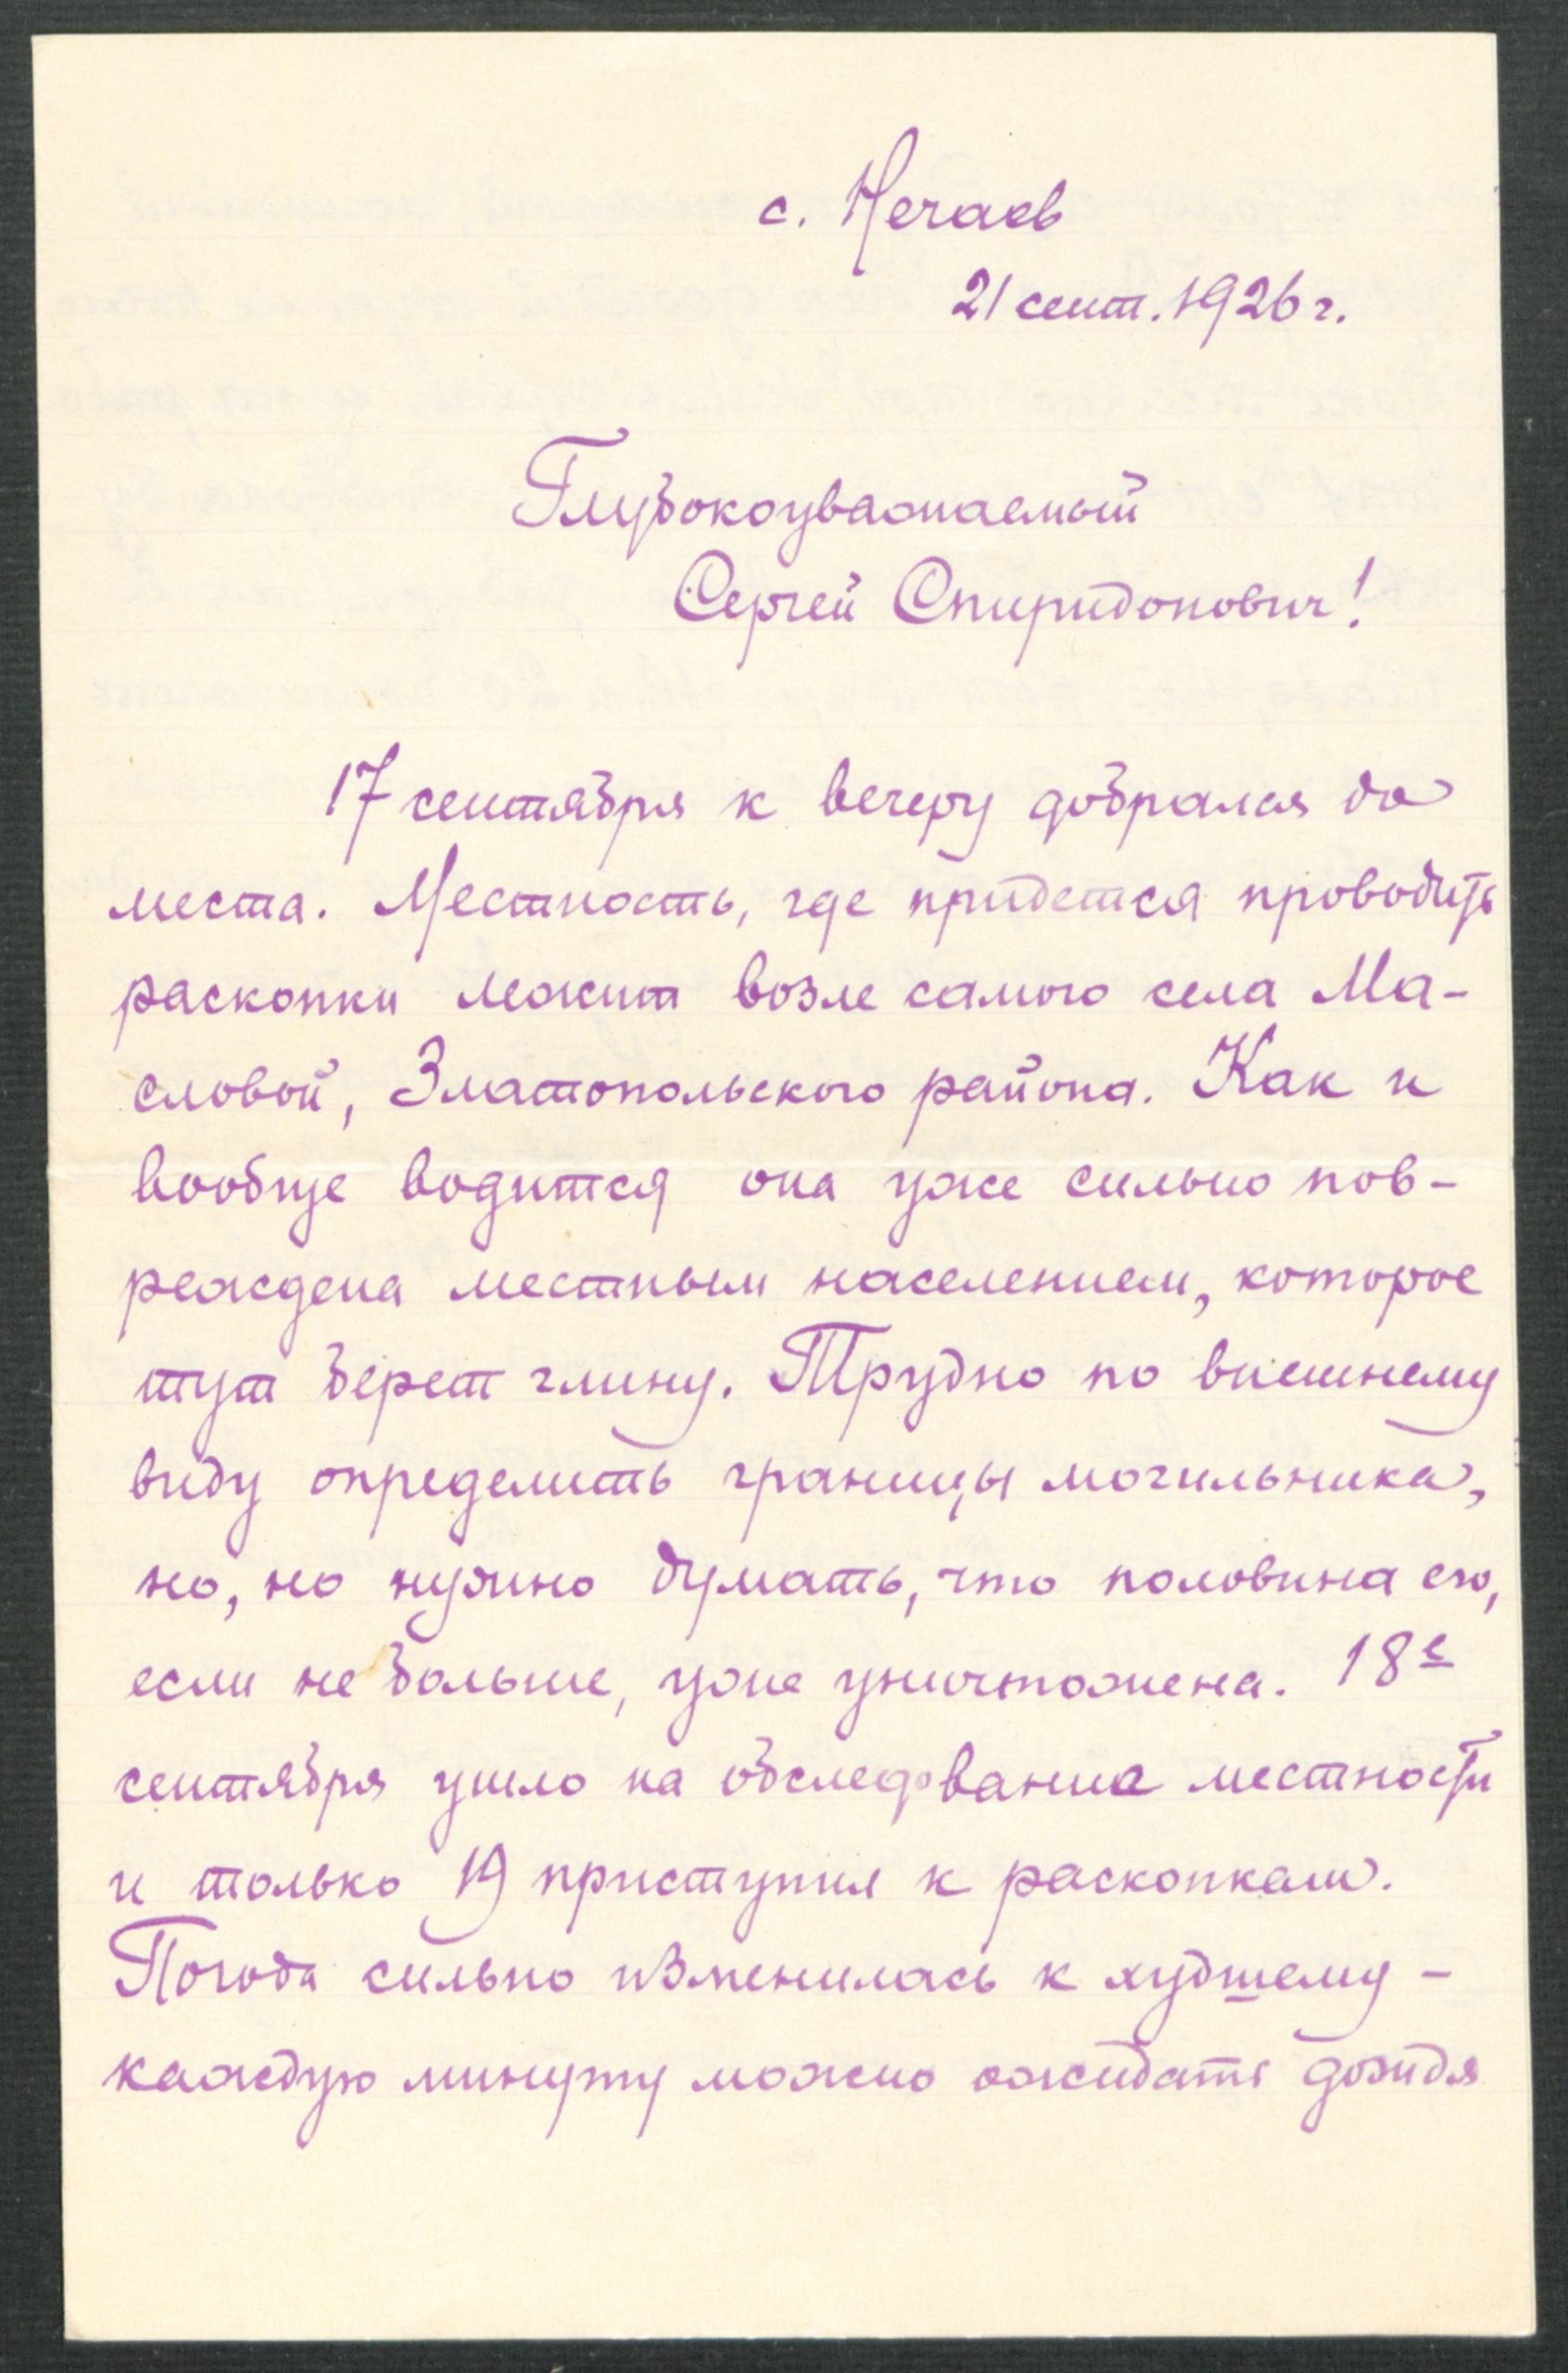 с. Нечаев
21 сент. 1926 г.
Глубокоуважаемый
Сергей Спиридонович!
17 сентября к вечеру добрался до
места. Местность, где придется проводить
раскопки лежит возле самого села Ма-
словой, Златопольского района. Как и
вообще водится она уже сильно пов-
реждена местным населением, которое
тут берет глину. Трудно по внешнему
виду определить границы могильника,
но, но нужно думать, что половина его,
если не больше, уже уничтожена. 18е
сентября ушло на обследование местности
и только 19 приступил к раскопкам.
Погода сильно изменилась к худшему –
каждую минуту можно ожидать дождя